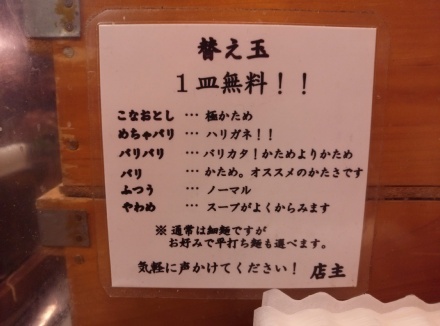 替え玉
1皿無料!!
こなおとし … 極かため
めちゃバリ … ハリガネ!!
バリバリ … バリカタ!かためよりかため
バリ … かため。オススメのかたさです
ふつう … ノーマル
やわめ … スープがよくからみます
※ 通常は細麺ですが
お好みで平打ち麺も選べます。
気軽に声かけてください! 店主